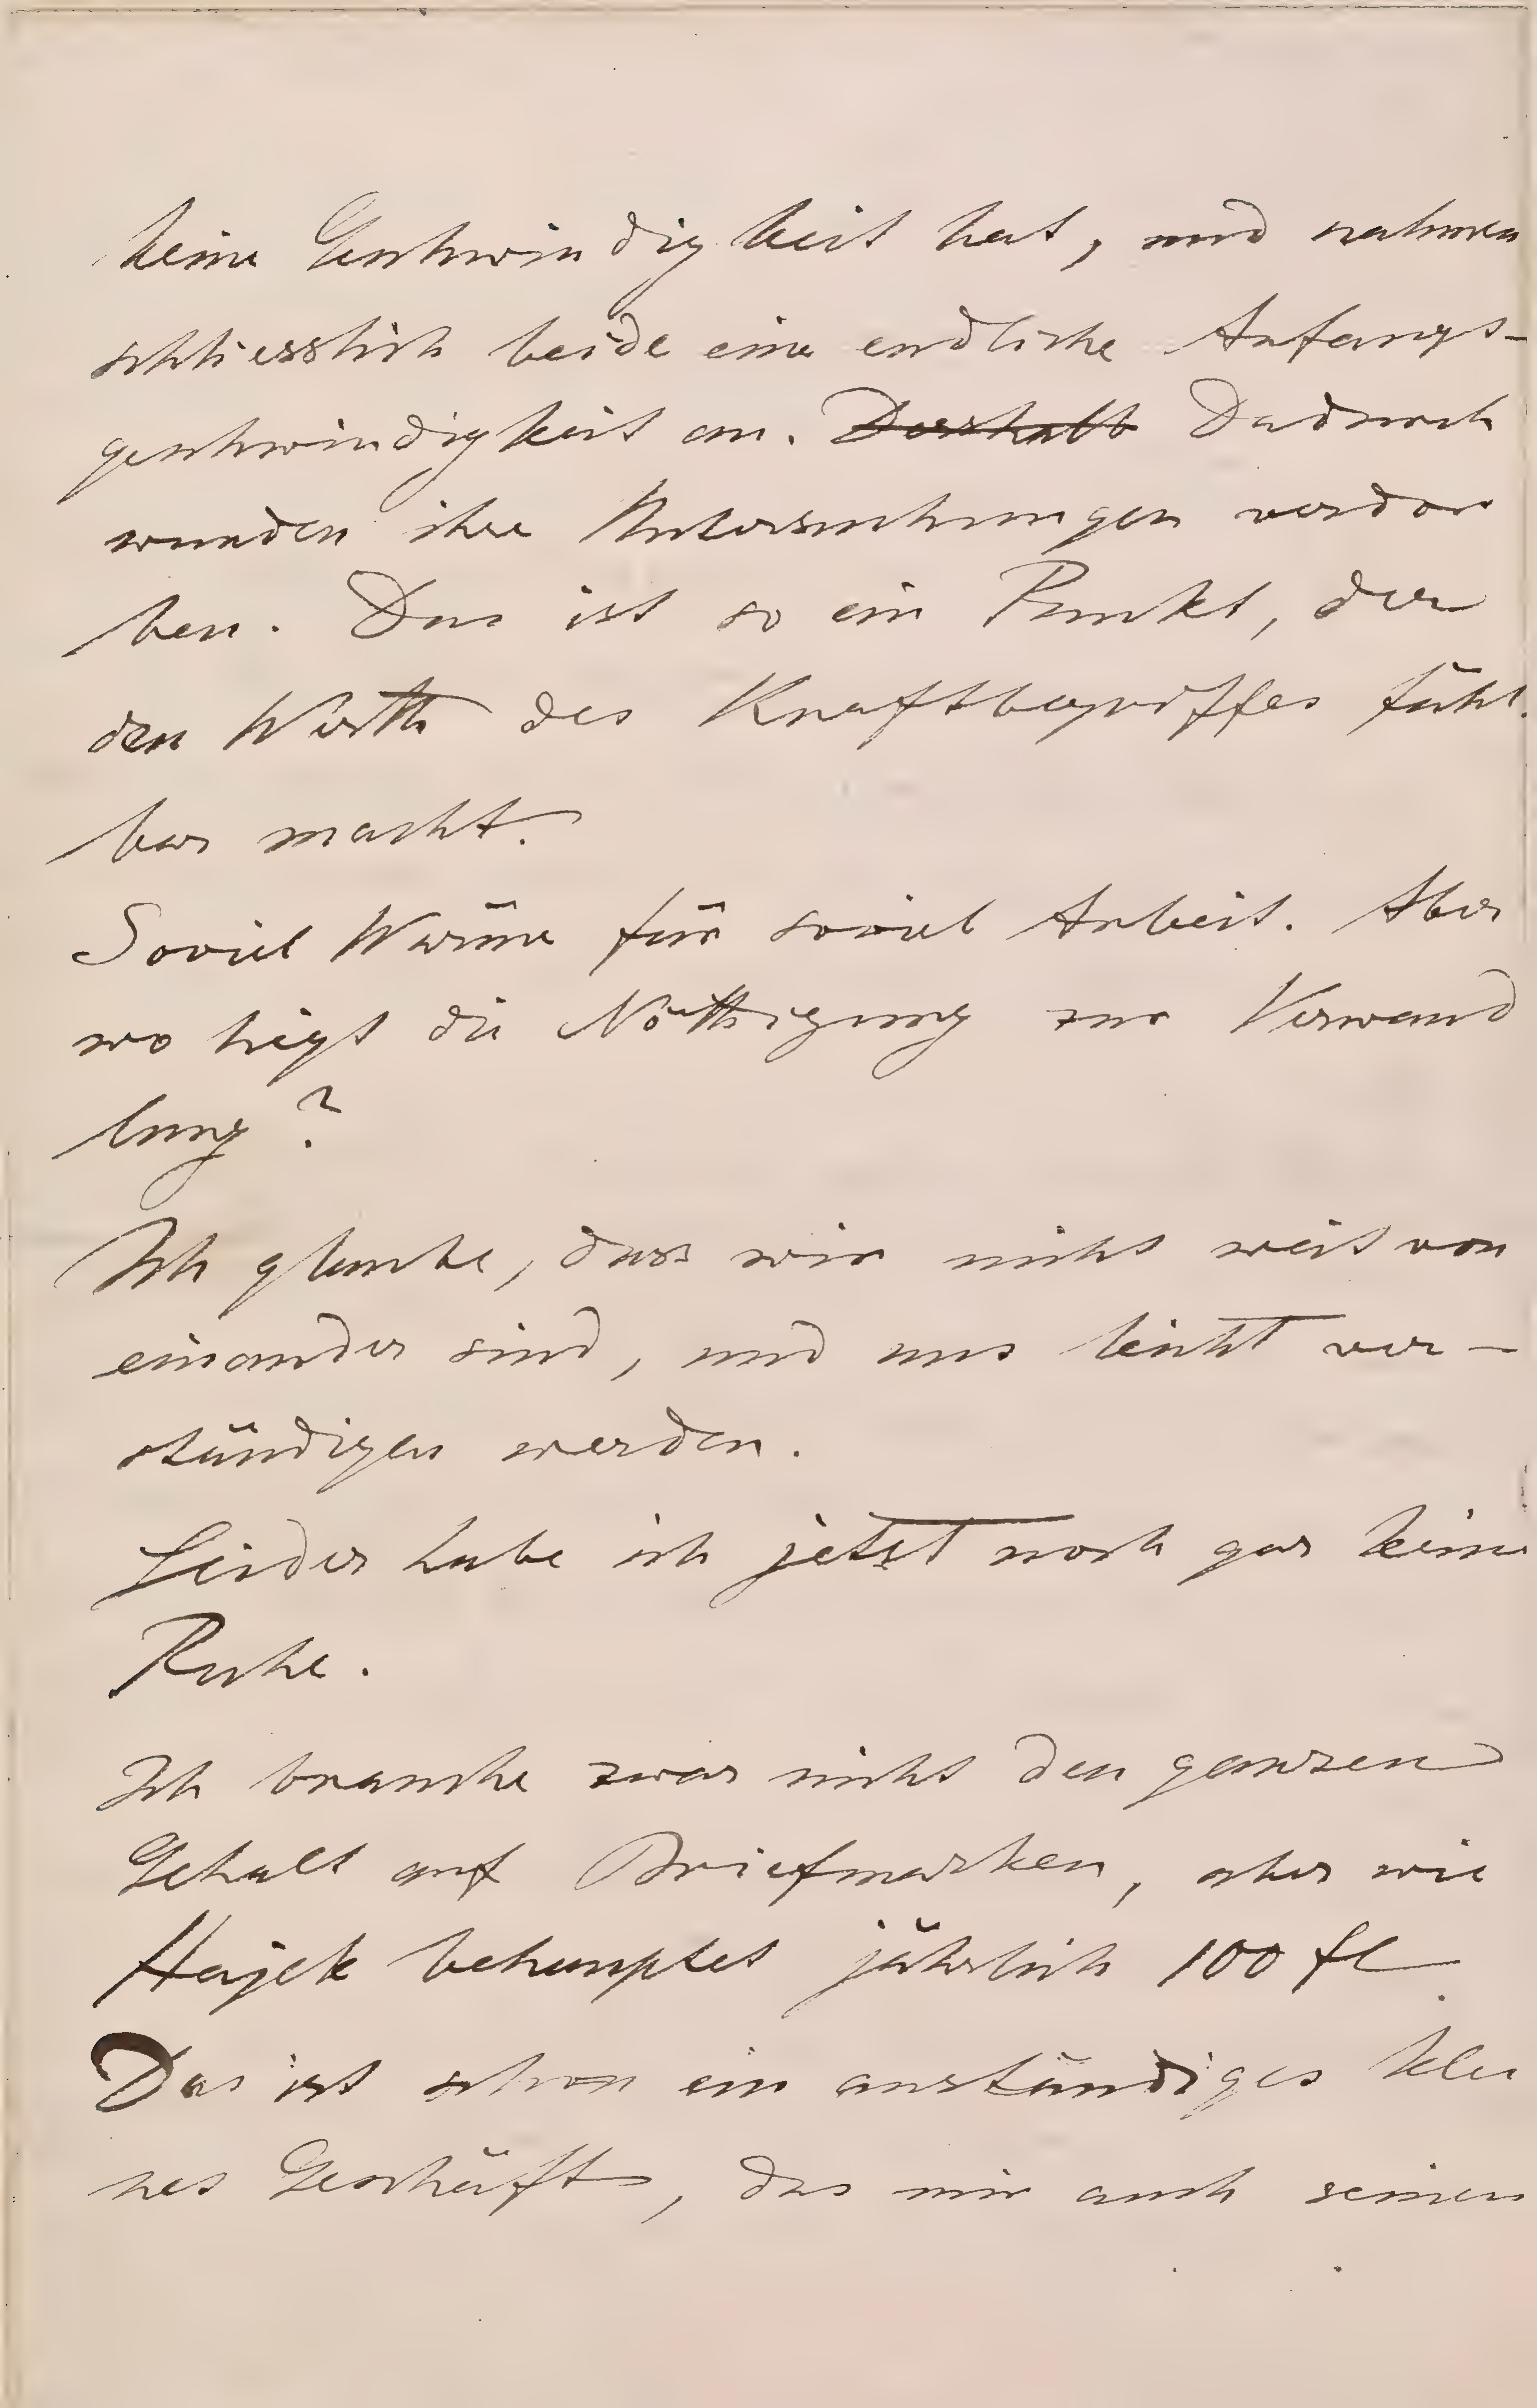 keine Geschwindigkeit hat, und nahmen
schliesslich beide eine endliche Anfangs-
geschwindigkeit an. Desshalb Dadurch
wurden ihre Untersuchungen verdor
ben. Das ist so ein Punkt, der
den Werth des Kraftbegriffes fühl
bar macht.
Soviel Wärme für soviel Arbeit. Aber
wo liegt die Nöthigung zur Verwand
lung?
Ich glaube, dass wir nicht weit von
einander sind, und uns leicht ver-
ständigen werden.
Leider habe ich jetzt noch gar keine
Ruhe.
Ich brauche zwar nicht den ganzen
Gehalt auf Briefmarken, aber wie
Hajek behauptet jährlich 100 fl.
Das ist schon ein anständiges klei
nes Geschäft, das mir auch seinen